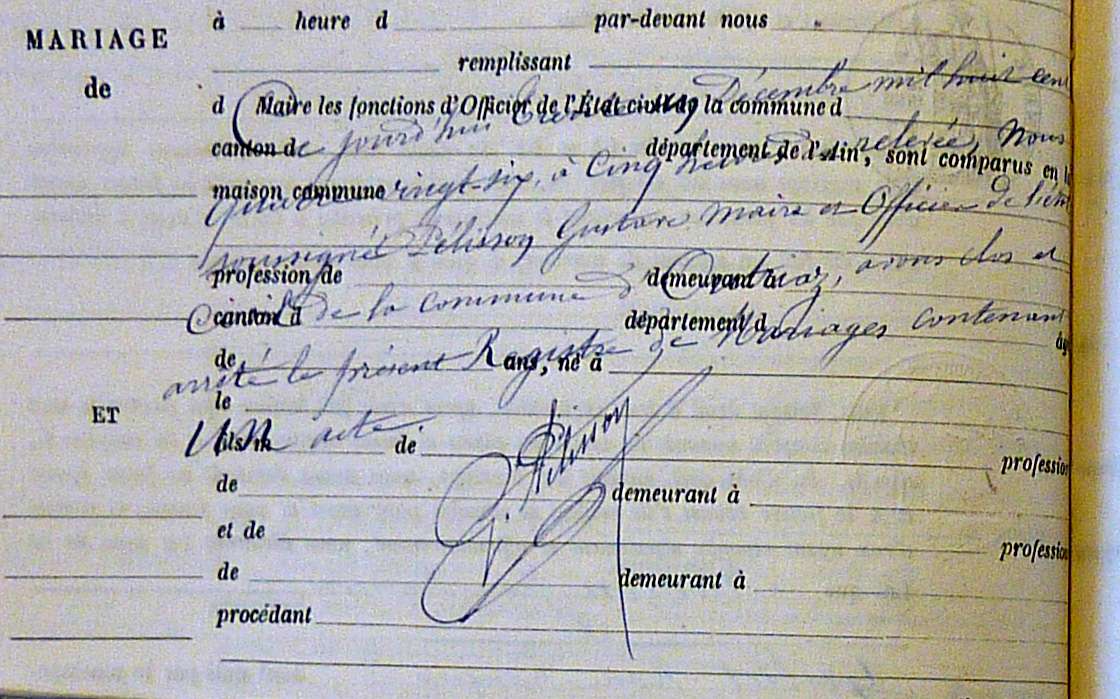 MARIAGE
de
ET
à heure d par-devant nous
remplissant
d Maire les fonctions d'Officier de l'État civil de la commune d
canton de département de l'Ain, sont comparus en l
maison commune
profession de demeurant à
canton d département d
de ans, né à âg
le
fils m de profession
de demeurant à
et de profession
de demeurant à
procédant
Ce jourd'hui trente un Décembre mil huit cent
quatre vingt-six, à Cinq heures du relevée, Nous
soussigné Pélisson Gustave Maire et Officier de l'état
Civil de la commune d' Ontriaz, avons clos et
arrêté le présent Registre de Mariages contenant
Un acte
Pélisson